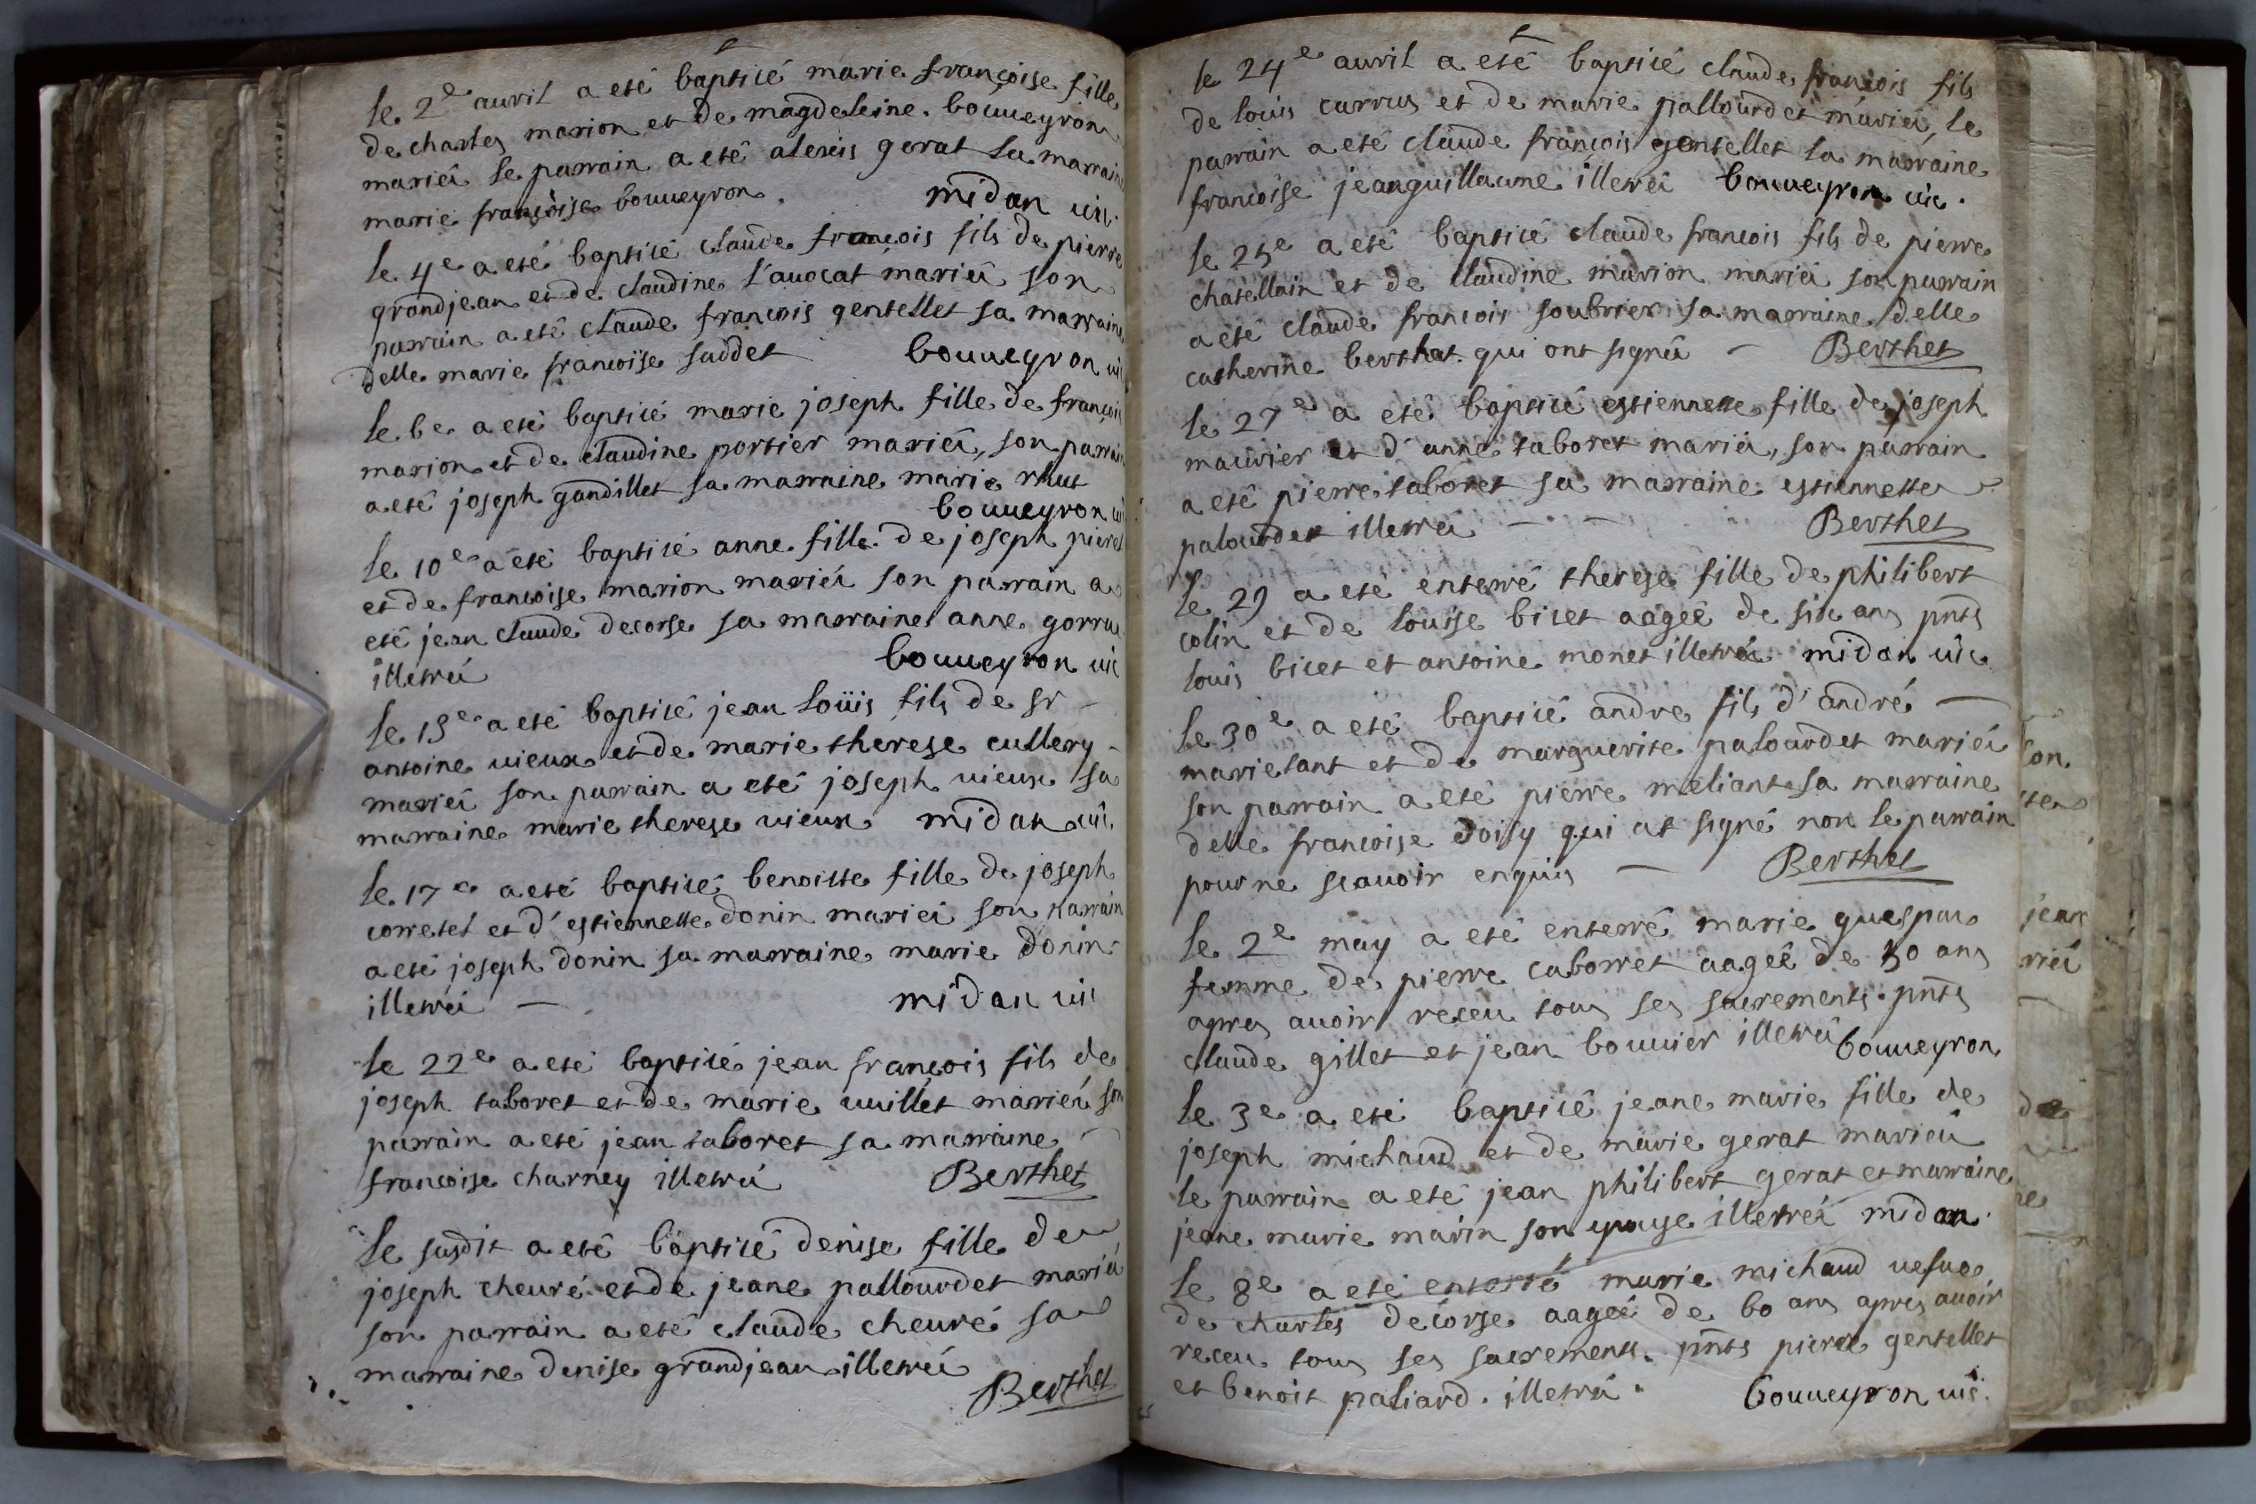 le 2e auril a eté baptisé marie françoise fille
de charles marion et de magdeleine bouueyron
mariés le parrain a eté alexis gerat la marraine
marie françoise bouueyron. midan uic.
le 4e a eté baptisé claude francois fils de pierre
grandjean et de claudine l'auocat mariés son
parrain a eté claude francois gentellet sa marraine
delle marie francoise saddet bouueyron uic
le 6e a eté baptisé marie joseph fille de françois
marion et de claudine portier mariés, son parrain
a eté joseph gandillet sa marraine marie
bouueyron ui
le 10e a eté baptisé anne fille de joseph
et de francoise marion mariés son parrain a
eté jean claude decorse sa marraine anne
illetrés bouueyron uic
le 15e a eté baptisé jean loüis fils de sr
antoine uieux et de marie therese cullery
mariés son parrain a eté joseph uieux sa
marraine marie therese uieux midan uic
le 17e a eté baptisé benoitte fille de joseph
corretel et d'estiennette donin mariés son parrain
a eté joseph donin sa marraine marie donin
illetrés midan uic
le 22e a eté baptisé jean françois fils de
joseph taboret et de marie uuillet mariés son
parrain a eté jean taboret sa marraine
francoise charney illetrés Berthet
le susdit a eté baptisé denise fille de
joseph cheuré et de jeane pallourdet mariés
son parrain a eté claude cheuré sa
marraine denise grandjean illetrés
Berthet
le 24e auril a eté baptisé claude francois fils
de louis carrus et de marie pallourdet mariés, le
parrain a eté claude françois gentellet la marraine
francoise jeanguillaume illetrés bouueyron uic.
le 25e a eté baptisé claude francois fils de pierre
chatellain et de claudine marion mariés son parrain
a eté claude francois soubrier sa marraine delle
catherine berthet qui ont signés Berthet
le 27e a eté baptisé estiennette fille de joseph
mauvier et d'anne taboret mariés, son parrain
a eté pierre taboret sa marraine estiennette
palourdet illetrés Berthet
le 29 a eté enterré therese fille de philibert
colin et de louise bicet aagée de six ans pnts
louis bicet et antoine monet illetrés midan uic
le 30e a eté baptisé andre fils d'andré
marietant et de marguerite palourdet mariés
son parrain a eté pierre meliant sa marraine
delle francoise doisy qui at signé non le parrain
pour ne scauoir enquis Berthet
le 2e may a eté enterré marie
femme de pierre caborret aagée de 50 ans
apres auoir receu tous ses sacrements. pnts
claude gillet et jean bouuier illetrés bouueyron
le 3e a eté baptisé jeane marie fille de
joseph michaud et de marie gerat mariés
le parrain a eté jean philibert gerat et marraine
jeane marie marin son epouse illetrés midan.
le 8e a eté enterré marie michaud uefue
de charles decorse aagée de 60 ans apres auoir
receu tous ses sacrements. pnts pierre gentellet
et benoit paliard. illetrés. bouueyron uic.